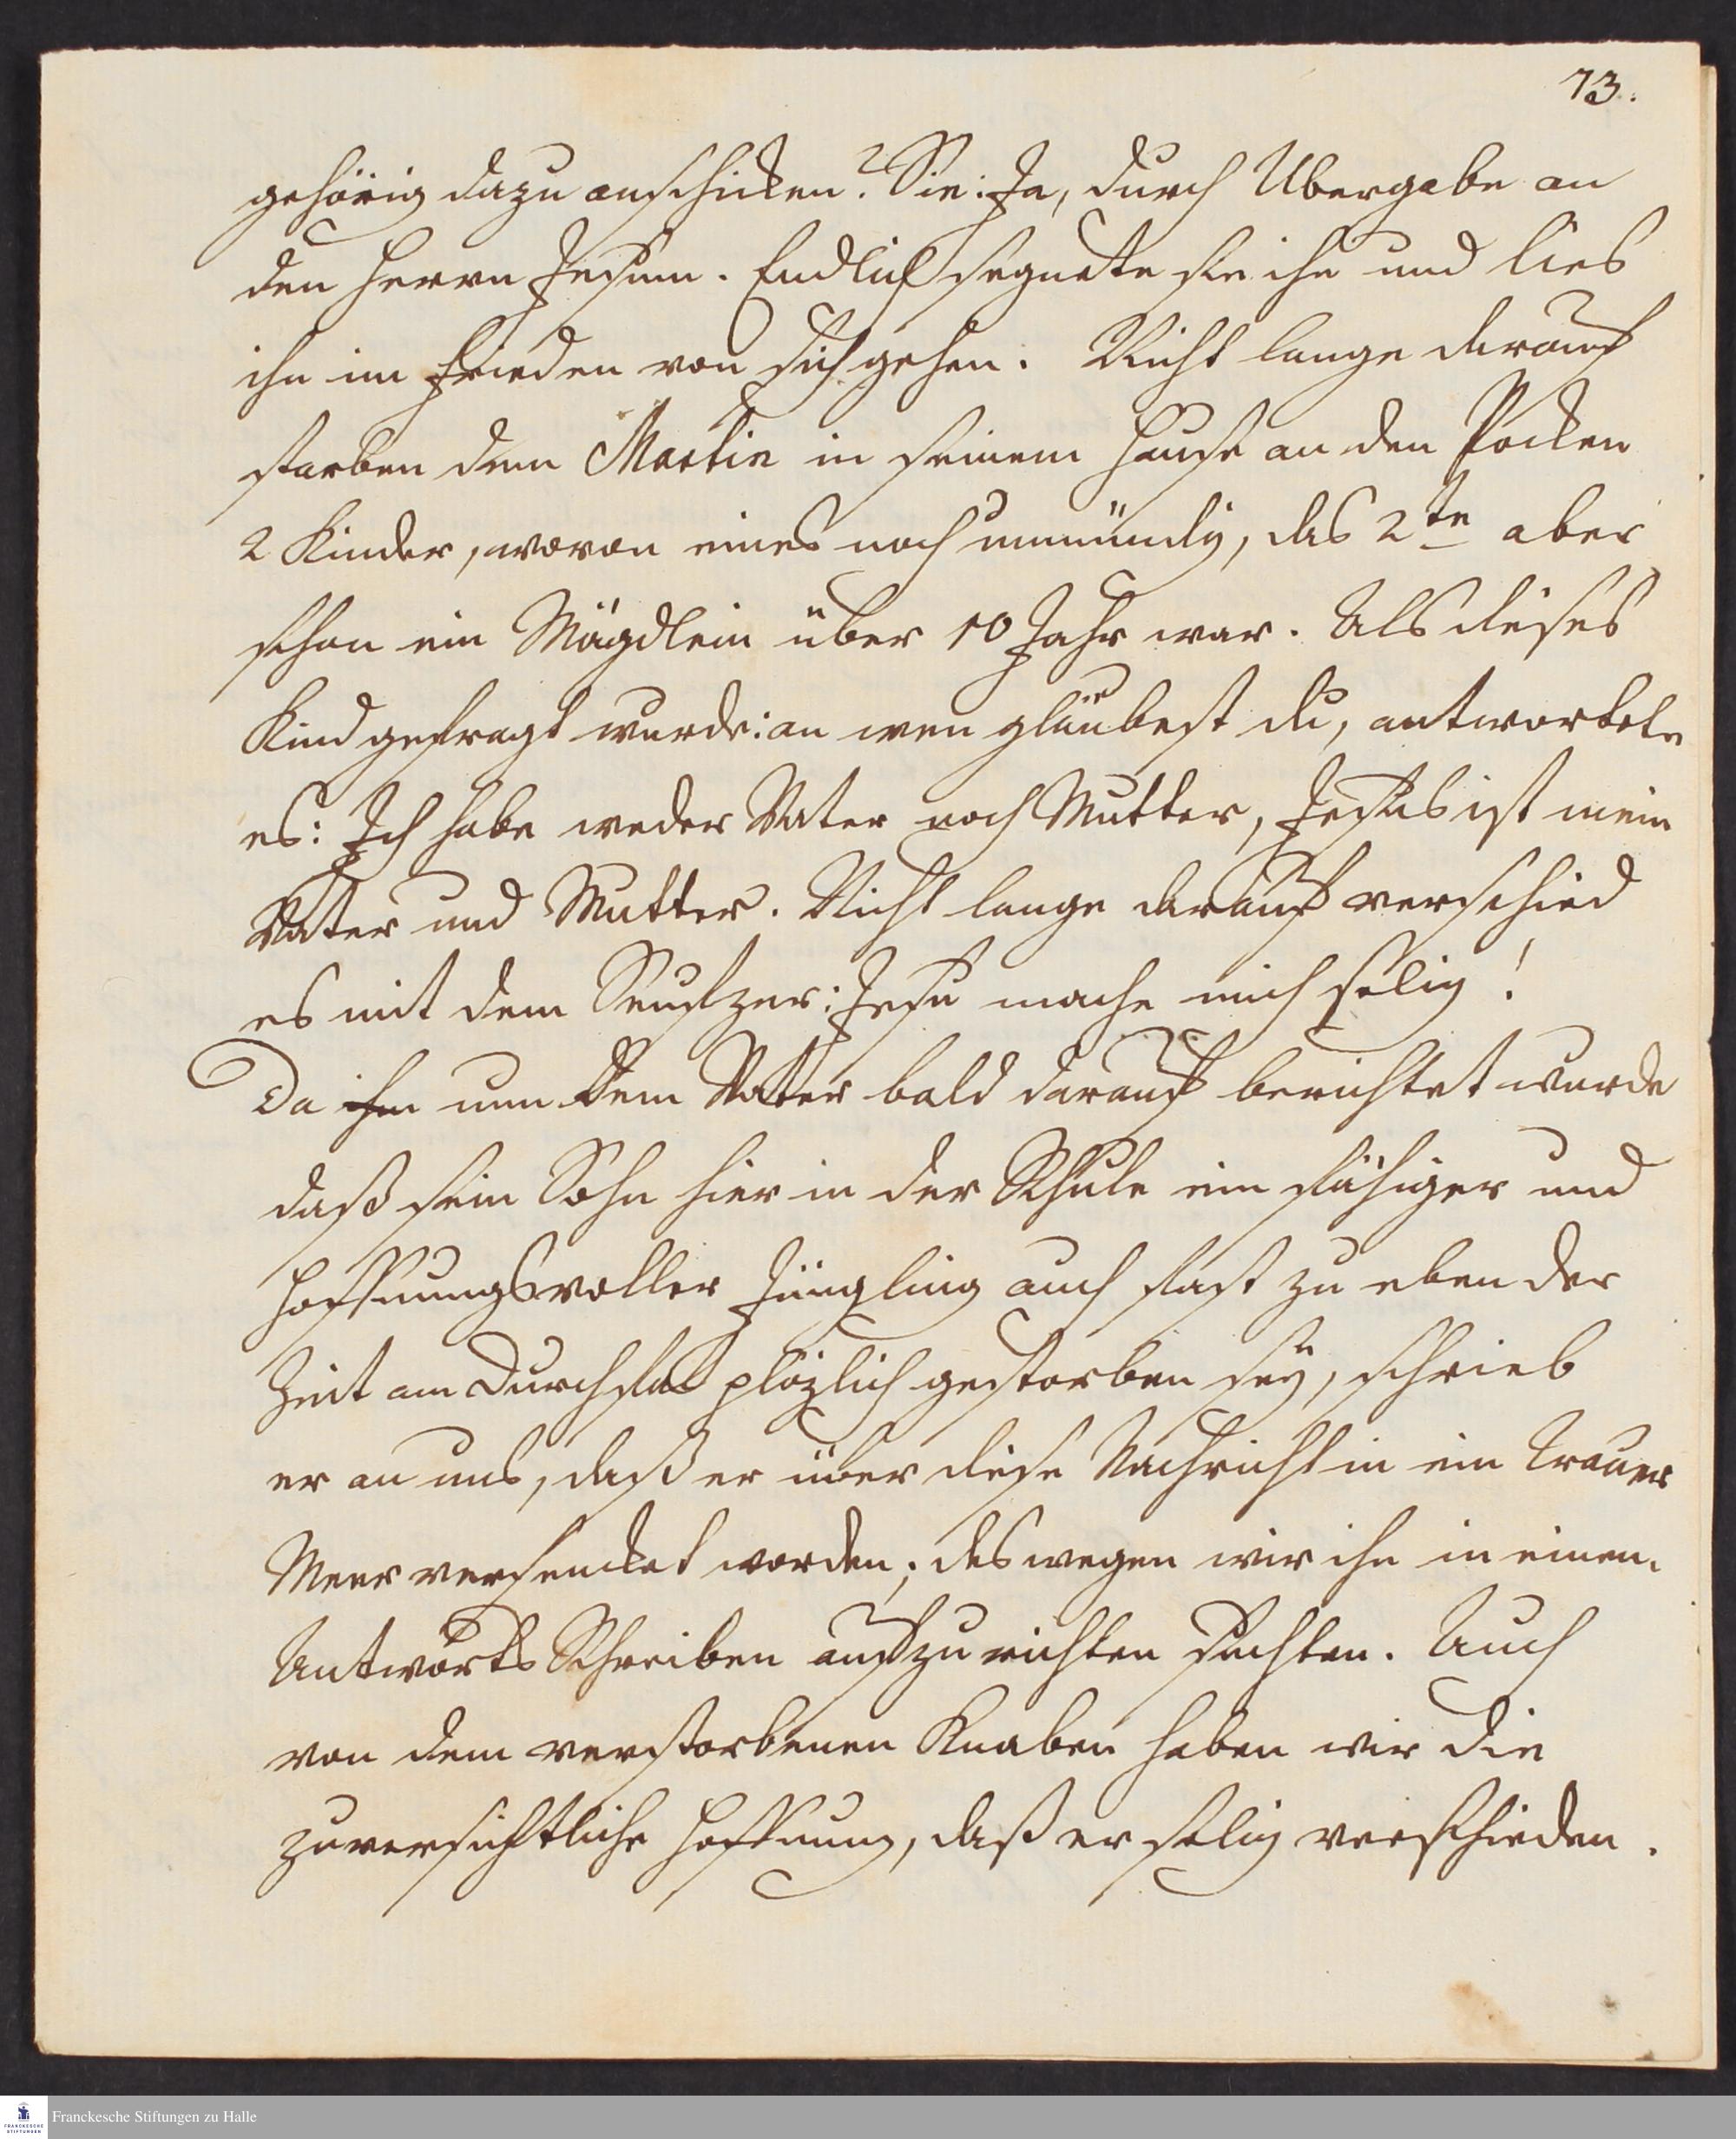 73.
gehörig dazu anschicken? Sie: Ja, durch Übergabe an
den Herrn Jesum. Endlich segnete sie ihn und lies
ihn im Frieden von sich gehen. Nicht lange darauf
starben dem Martin in seinem Hause an den Pocken
2 Kinder, wovon eines noch unmündig, das 2te aber
schon ein Mägdlein über 10 Jahr war. Als dieses
Kind gefragt wurde: an wen gläubest du, antwortete
es: Ich habe weder Vater noch Mutter, Jesus ist mein
Vater und Mutter. Nicht lange darauf verschied
es mit dem Seufzer: Jesu mache mich selig!
Da ihm nun dem Vater bald darauf berichtet wurde
daß sein Sohn hier in der Schule ein fähiger und
hoffnungsvoller Jüngling auch fast zu eben der
Zeit am Durchfal plözlich gestorben sey, schrieb
er an uns, daß er über diese Nachricht in ein Trauer
Meer versencket worden; deswegen wir ihn in einem
Antworts Schreiben aufzurichten suchten. Auch
von dem verstorbenen Knaben haben wir die
zuversichtliche Hoffnung, daß er selig verschieden.
Franckesche Stiftungen zu Halle
FRANCKESCHE
STIFTUNGEN